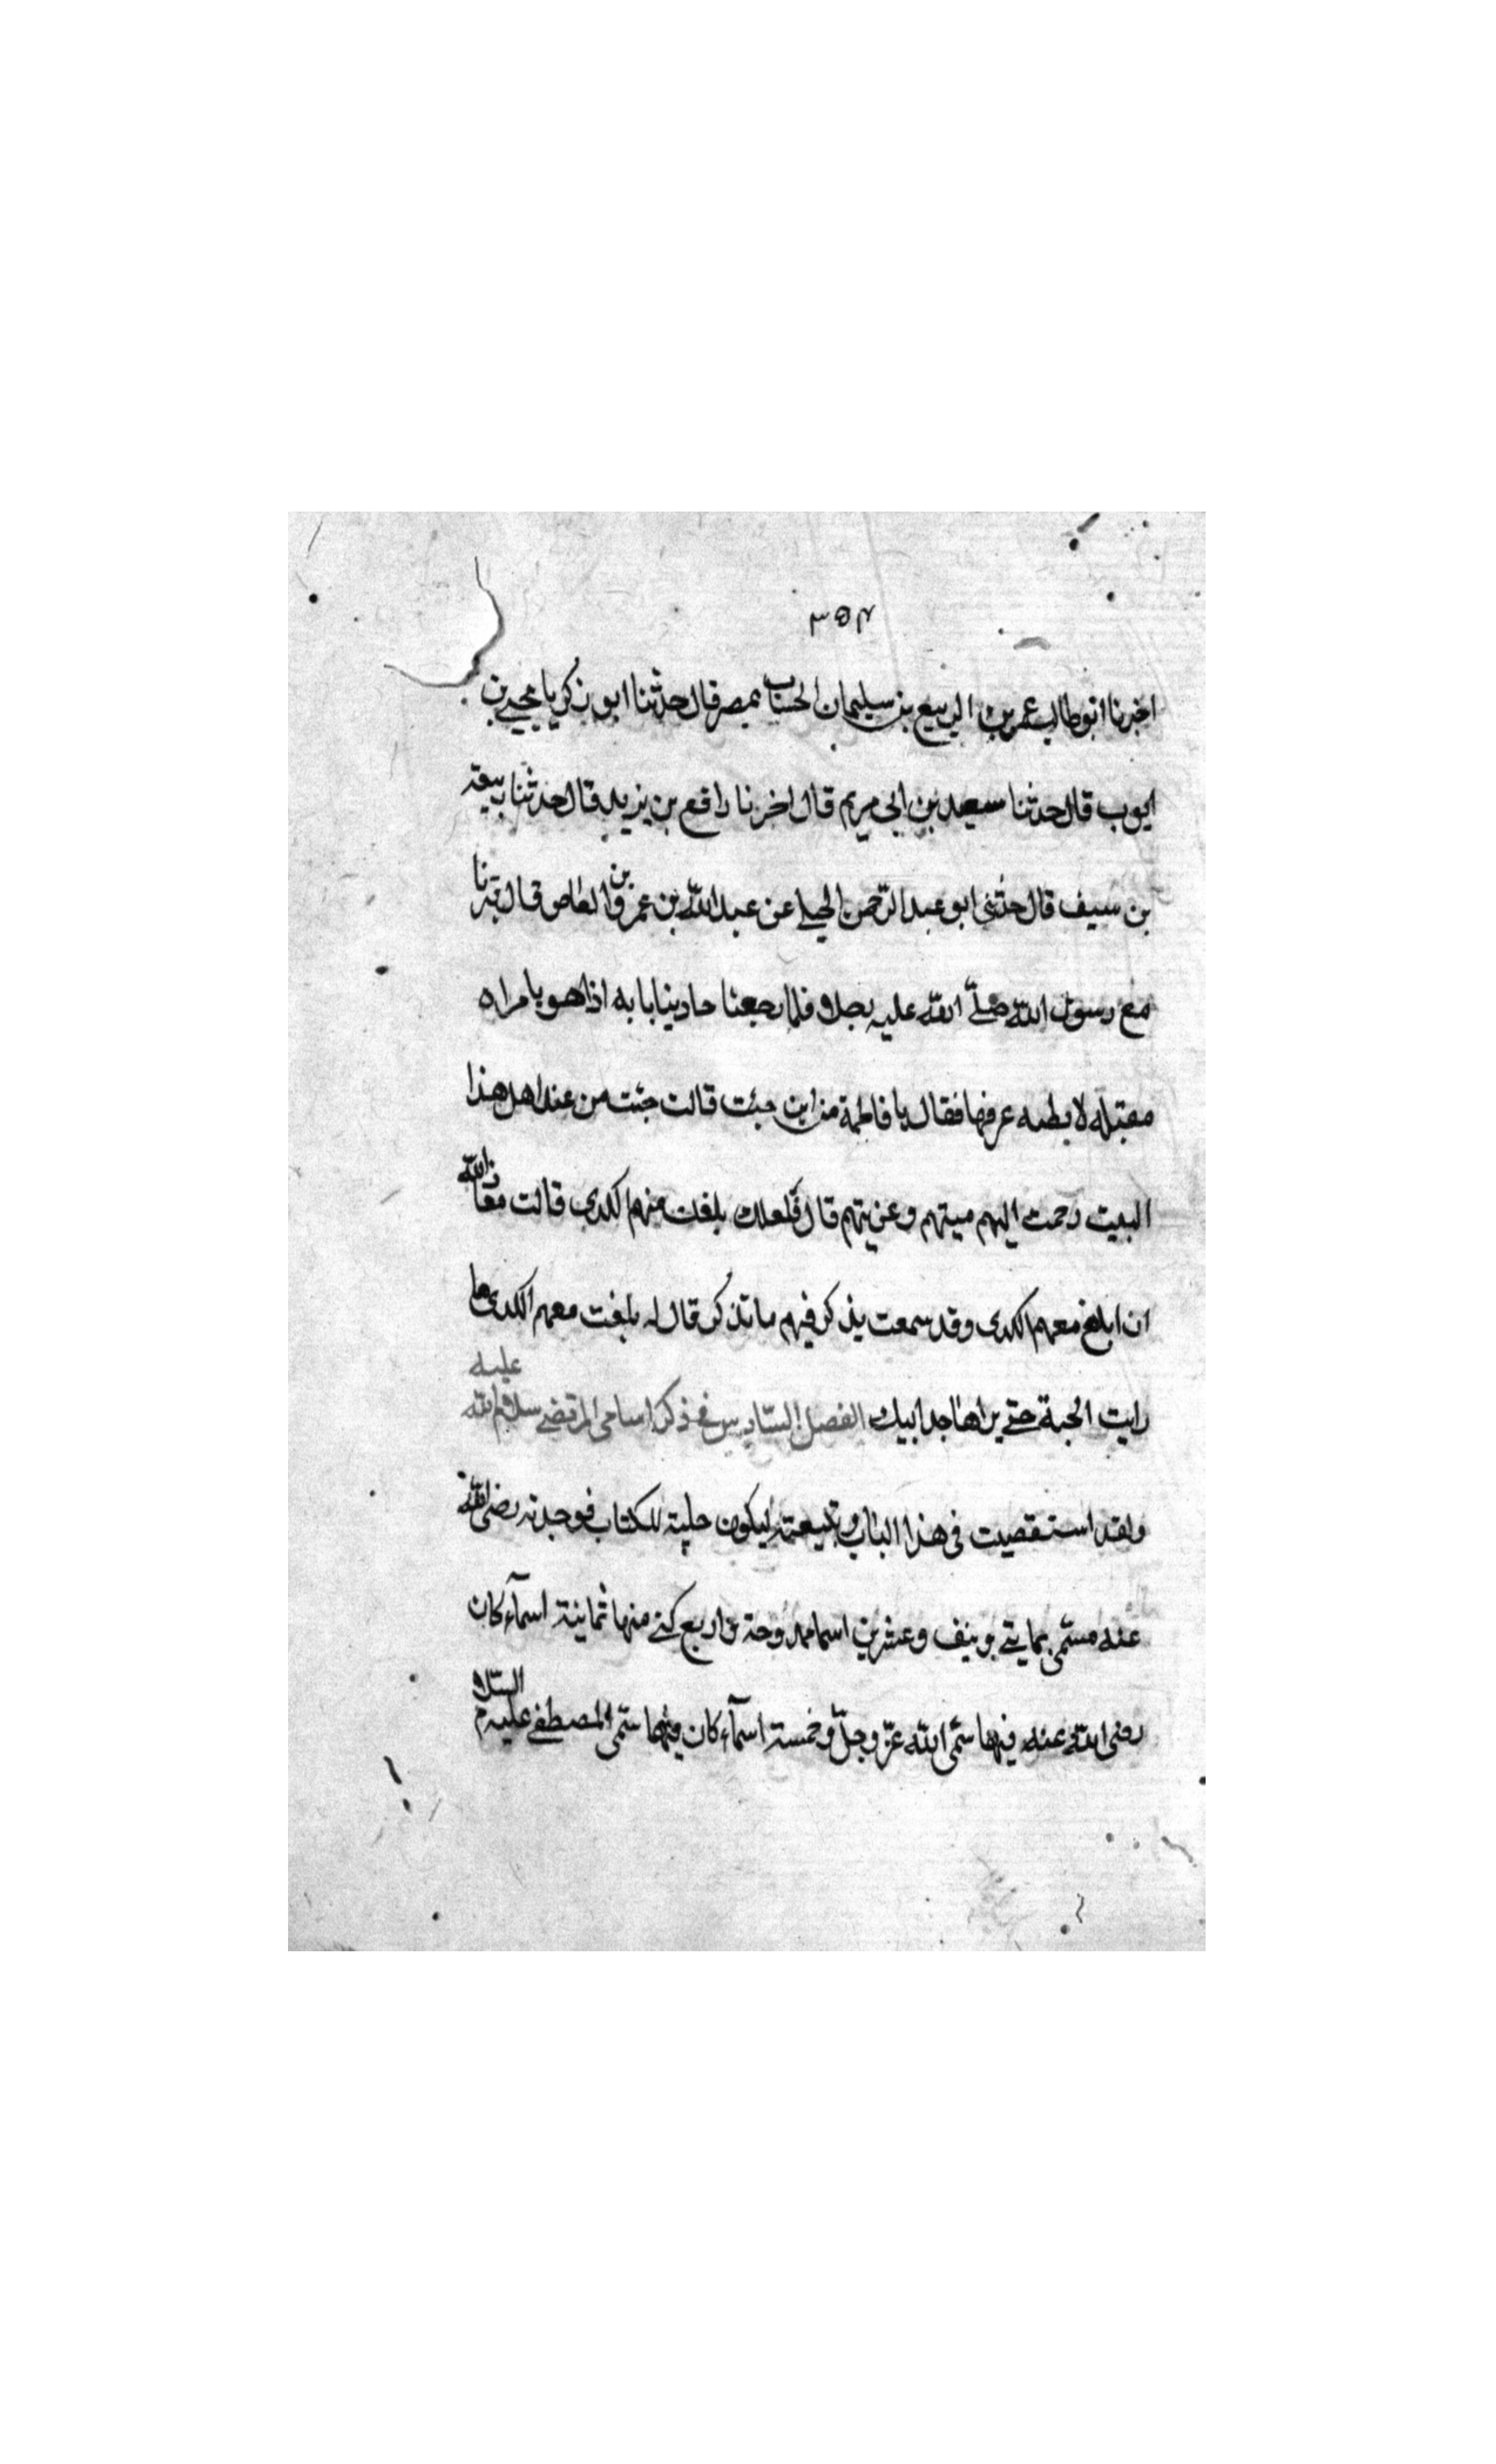 ٣٥٤
اخبرنا ابو طالب عمر بن الربيع بن سليمان الحساب بمصر قال حدثنا ابو زكريا يحيى بن
ايوب قال حدثنا سعيد بن ابى مريم قال اخبرنا رافع بن يزيد قال حدثنا ربيعة
بن سيف قال حدثنى ابو عبد الرّحمن الحبلى عن عبد اللّه بن عمرو بن العاص قال قبرنا
مع رسول اللّه صلّى اللّه عليه رجلا فلما رجعنا حاذينا بابه اذا هو بامراه
مقبله لا يظنه عرفها فقال يا فاطمة من اين جئت قالت جئت من عند اهل هذا
البيت رحمت اليهم ميتهم وعزيتهم قال فلعلك بلغت منهم الكدى قالت معاذ اللّه
ان ابلغ معهم الكدى وقد سمعت يذكر فيهم ما تذكر قال لو بلغت معهم الكدى ما
رايت الجنة حتى يراها جد ابيك الفصل السّادس فى ذكر اسامى المرتضى سلام اللّه عليه
ولقد استقصيت فى هذا الباب وتتبعته ليكون حلية للكتاب فوجدته رضى اللّه
عنه مسمّى بمايتى ونيف وعشرين اسما ممدوحة واربع كنى منها ثمانية اسمآء كان
رضى اللّه عنه فيها سمّى اللّه عزّ وجلّ وخمسة اسمآء كان فيها سمّى المصطفى عليه السّلام